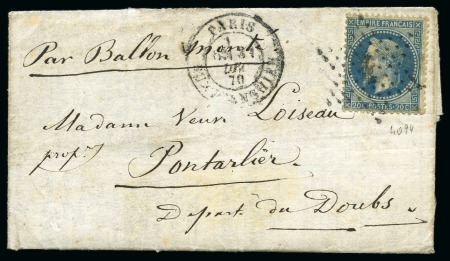 Par Ballon monté
PARIS
DÉC
70
EMPIRE FRANÇAIS
20c POSTES 20c
Madame Veuve Loiseau
prop.re
Pontarlier
4094
Depart du Doubs